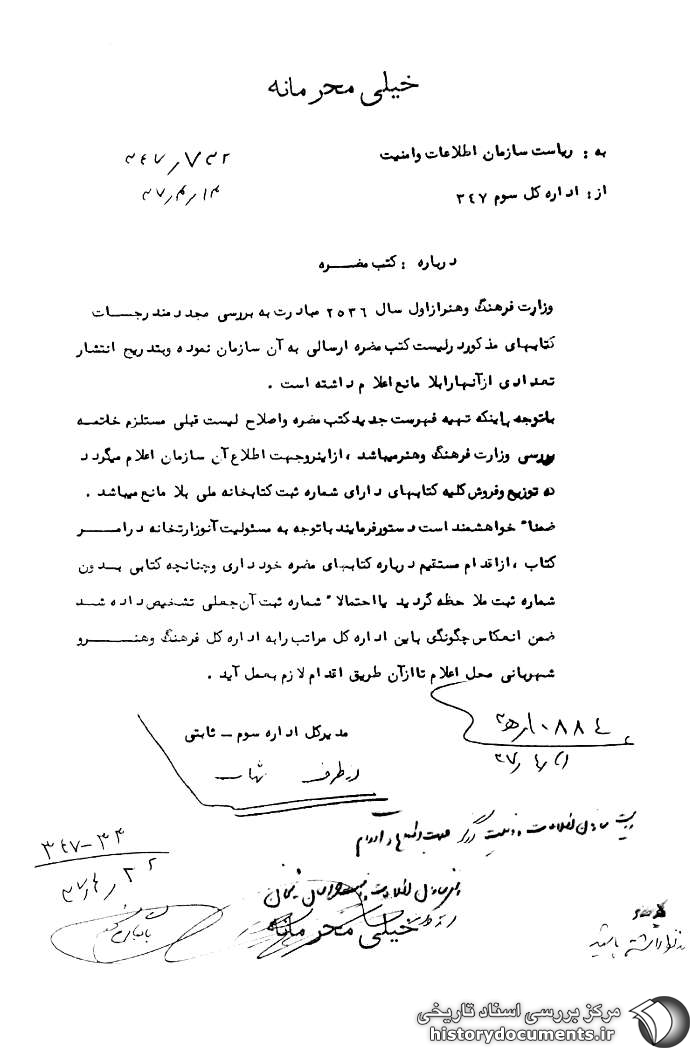 خیلی محرمانه
به : ریاست سازمان اطلاعات وامنیت
از : اداره کل سوم ۳۴۷
درباره : کتب مضـــره
وزارت فرهنگ وهنرازاول سال ۲۵۳۶ مبادرت به بررسی مجدد مندرجـــات
کتابهای مذکوردرلیست کتب مضره ارسالی به آن سازمان نموده وبتدریج انتشار
تعدادی ازآنهارابلا مانع اعلام داشته است .
باتوجه باینکه تهیه فهرست جدیدکتب مضره واصلاح لیست قبلی مستلزم خاتمـه
بررسی وزارت فرهنگ وهنرمیباشد ، ازاینروجهت اطلاع آن سازمان اعلام میگردد
که توزیع وفروش کلیه کتابهای دارای شماره ثبت کتابخانه ملی بلا مانع میباشد .
ضمنا" خواهشمند است دستورفرمایند باتوجه به مسئولیت آنوزارتخانه درامـــر
کتاب ، ازاقدام مستقیم درباره کتابهای مضره خودداری وچنانچه کتابی بـدون
شماره ثبت ملاحظه گردید یااحتمالا" شماره ثبت آن جعلی تشخیص داده شـد
ضمن انعکاس چگونگی باین اداره کل مراتب رابه اداره کل فرهنگ وهنـــرو
شهربانی محل اعلام تاازآن طریق اقدام لازم بعمل آید .
مدیرکل اداره سوم - ثابتی
از طرف
۳۴۷-۳۴
خیلی محرمانه
مرکز بررسی اسناد تاریخی
historydocuments.ir